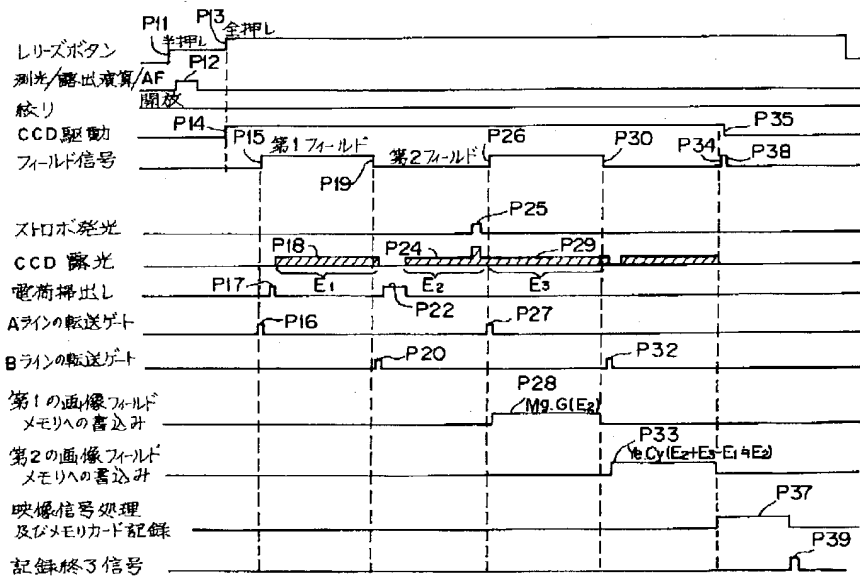 P13
P11 半押し 全押し
レリーズボタン
測光/露出演算/AF P12
絞リ 開放
CCD駆動 P14 P35
フィールド信号 P15 第1フィールド P19 第2フィールド P26 P30 P34 P38
ストロボ発光 P25
CCD露光 P18 P24 P29
E1 E2 E3
電荷掃出し P17 P22
Aラインの転送ゲート P16 P27
Bラインの転送ゲート P20 P32
第1の画像フィールド P28
メモリへの書込み Mg.G(E2)
第2の画像フィールド P33
メモリへの書込み Ye.Cy(E2+E3-E1≒E2)
映像信号処理 P37
及びメモリカード記録
記録終了信号 P39